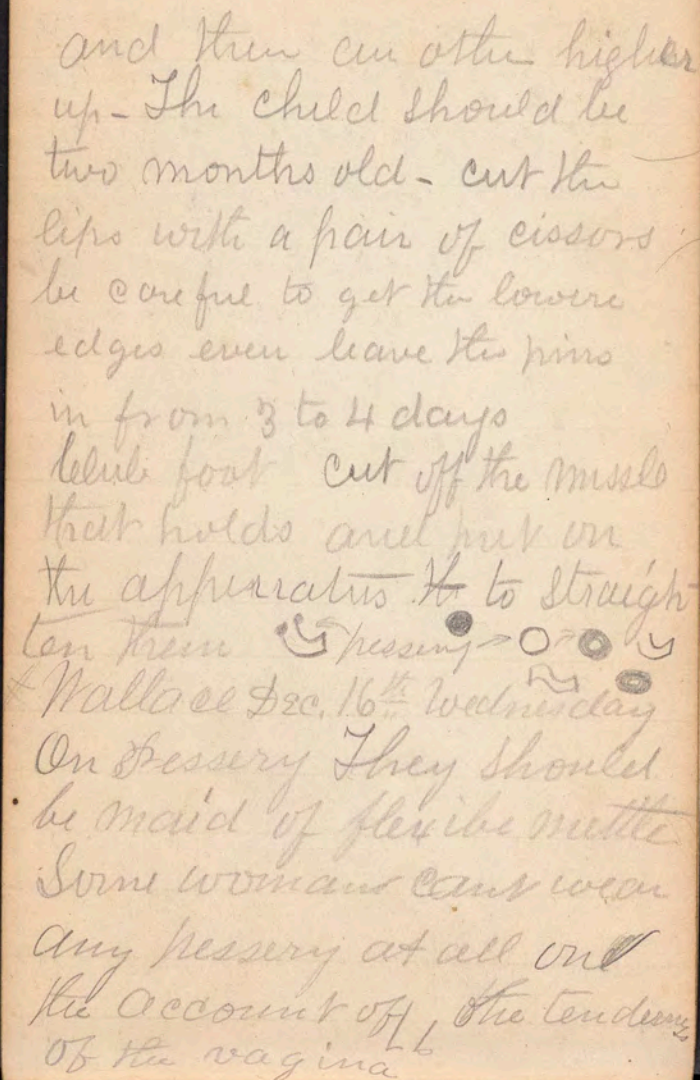 and then an other higher
up - The child should be
two months old - cut the
lips with a pair of cissors
be careful to get the lowere
edges even leave the pins
in from 3 to 4 days
foot cut off the mussle
that holds and put on
the apperratus to straigh
ten them pessery
Wallace Dec. 16th Wednesday
On Pessery They should
be maid of flexibe mettle
Some womans cant wear
any pessery at all on
the account off the tenderness
of the vagina